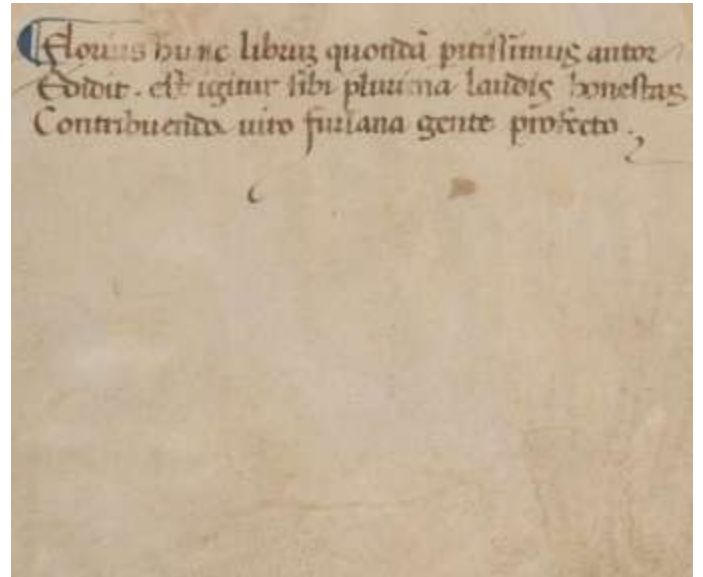 Florius hunc libruꝫ quondã pitissimus autor
Edidit. est igitur sibi plurima laudis honestas
Contribuenda uiro furlana gente profecto.